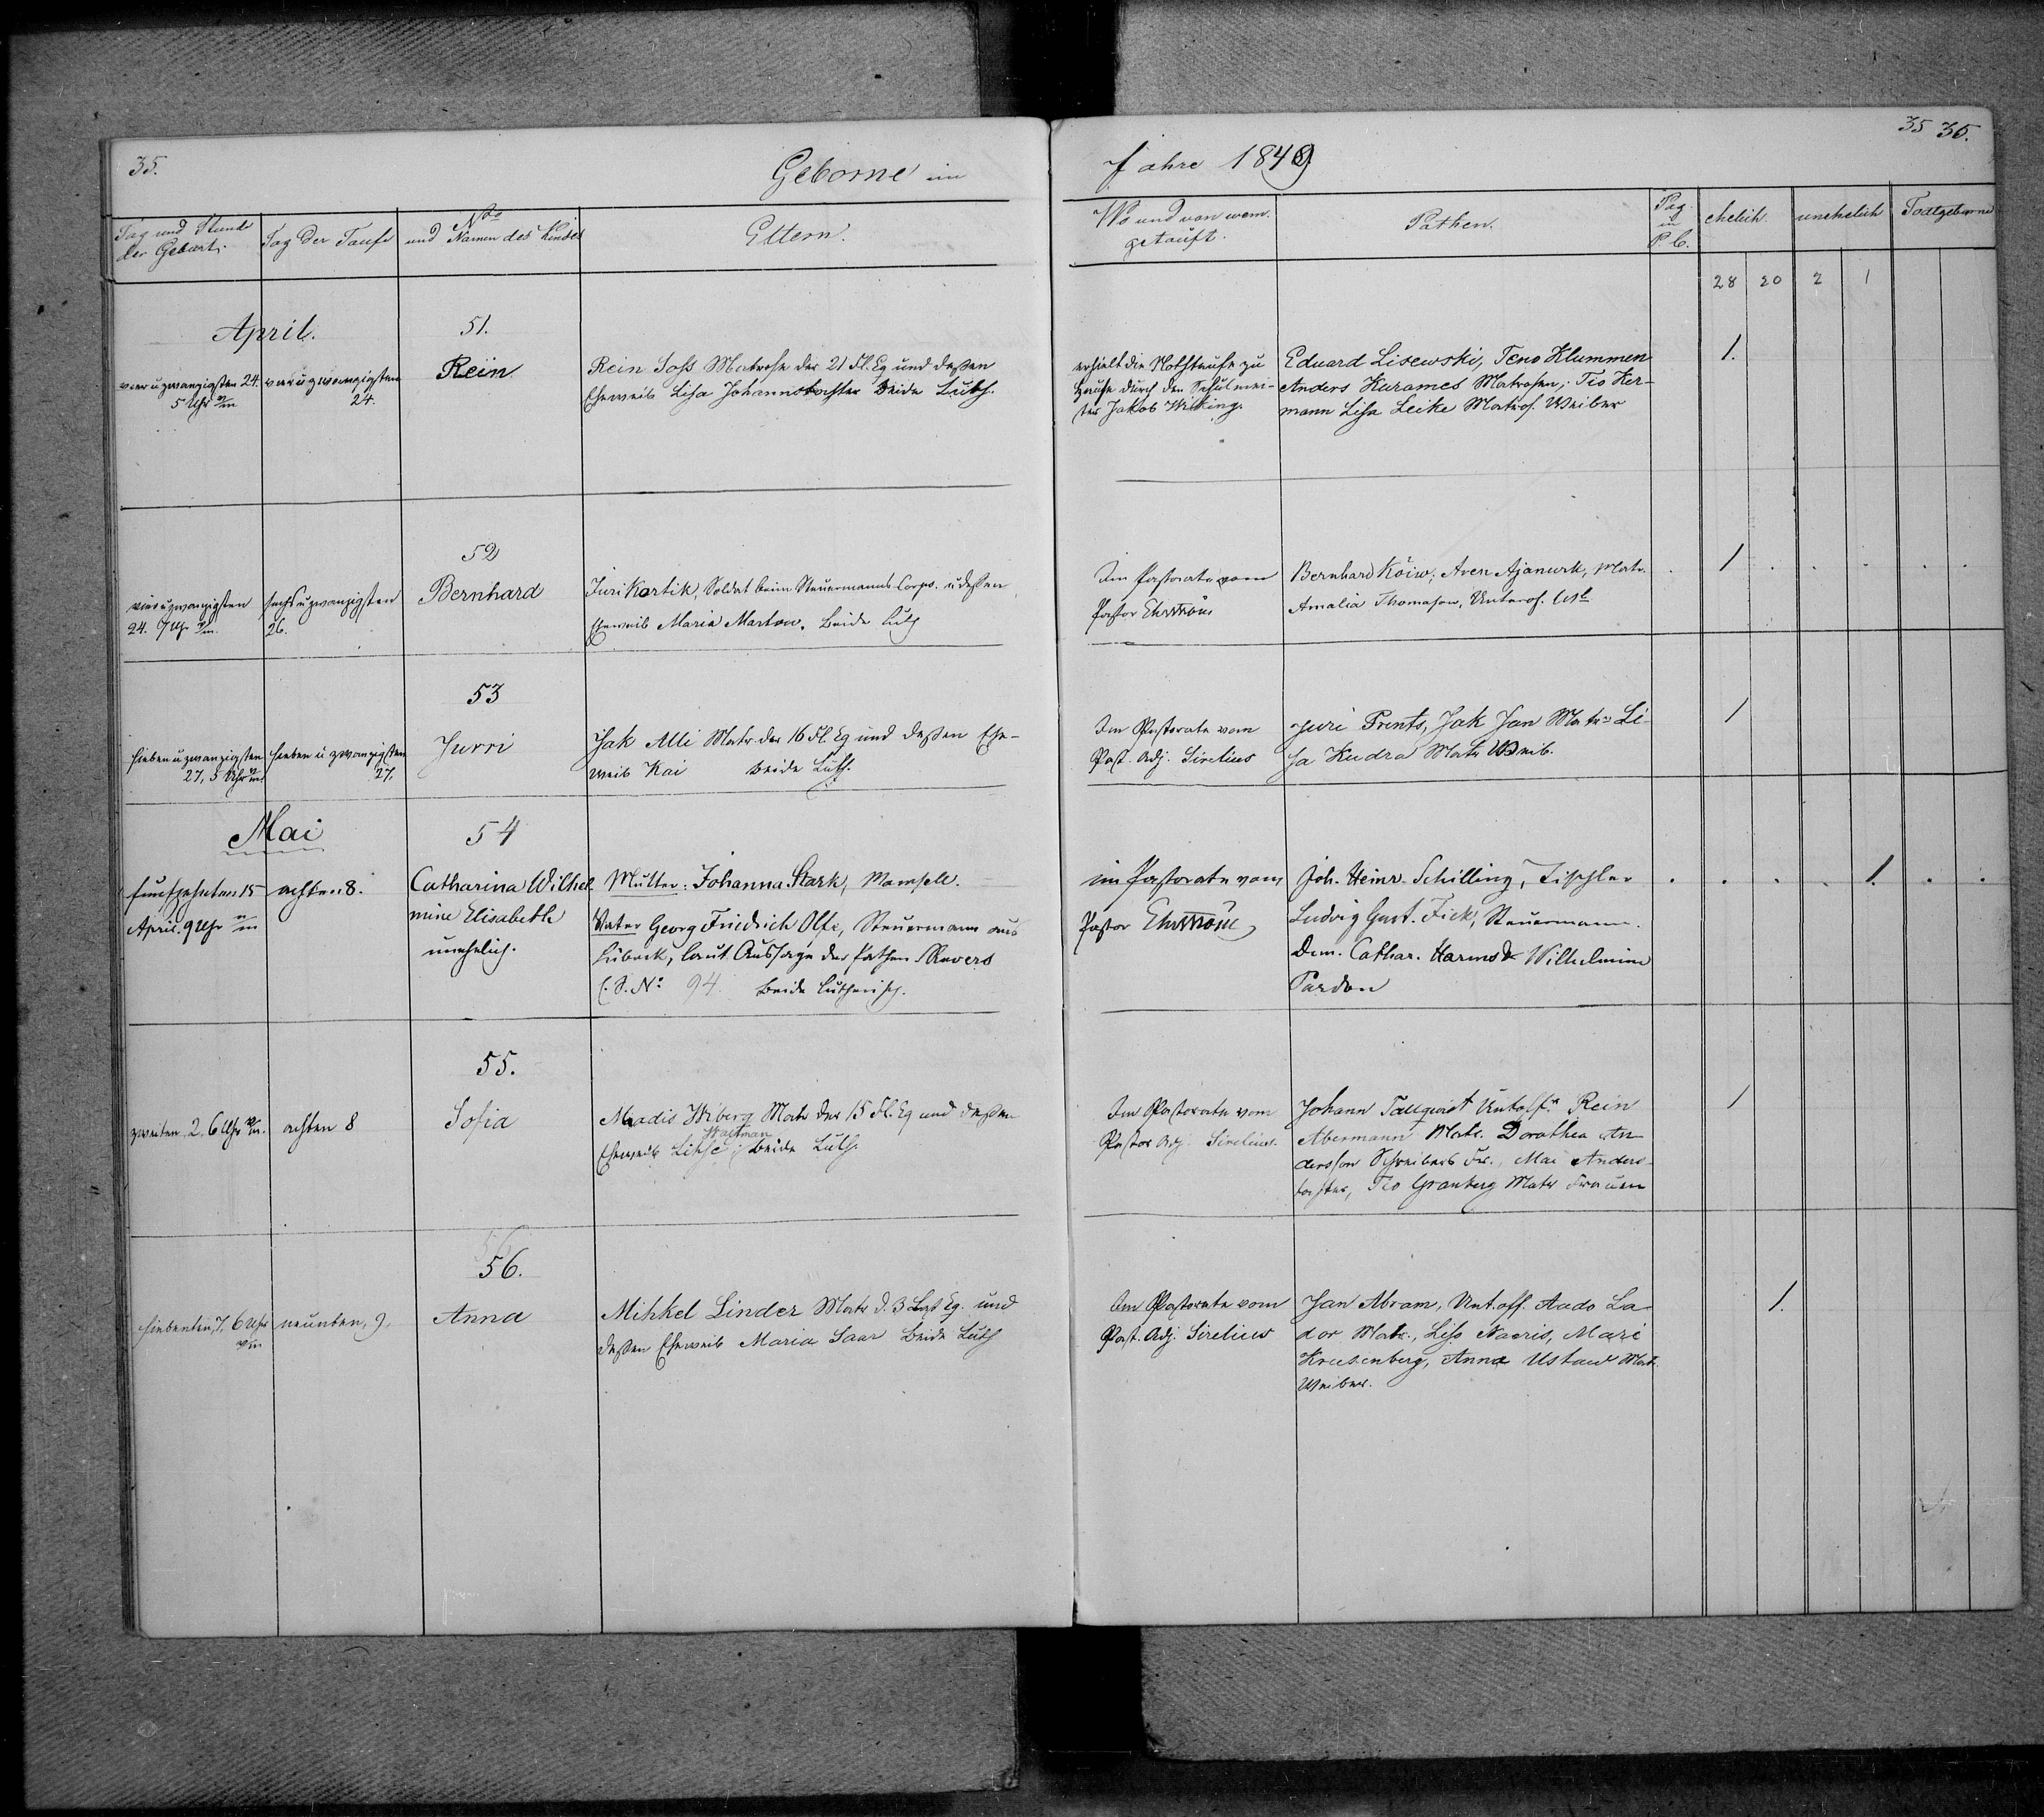 35.
Geborne im
Jahre 1849.
35 36.
Tag und Stunde
der Geburt.
Tag der Taufe
No
und Namen des Kindes
Eltern.
Wo und von wem
getauft.
Pathen.
Pag.
in
P. C.
ehelich.
unehelich
Todtgeborne
28 20 2 1
April.
51.
vier u zwanzigsten 24.
5 Uhr
vier u zwanzigsten
24.
Rein
Rein Soss Matrose der 21 Fl. Eq und dessen
Eheweib Lisa Johannstochter Beide Luth.
erhielt die Nothtaufe zu
Hause durch den Schulmei-
ster Jakob Wiking.
Eduard Lisewski, Teno Klummen
Anders Karames Matrosen, Tio Ker-
mann Lisa Leike Matros. Weiber
1.
52
vier u zwanzigsten
24.
sechs u zwanzigsten
26.
Bernhard
Juri Kartik, Soldat beim Steuermanns Corps. u dessen
Eheweib Maria Martow. Beide Luth
Im Pastorate vom
Pastor Ehrström
Bernhard Köiw, Aren Ajanurk, Matr.
Amalia Thomason, Unterof.
1
53
sieben u zwanzigsten
27, 5 Uhr
sieben u zwanzigsten
27.
Jurri
Jak Alli Matr der 16 Fl. Eq und dessen Ehe-
weib Kai Beide Luth.
Im Pastorate vom
Past. Adj. Sirelius
Juri Prents, Jak Jan Matr. Li-
sa Kudra Matr Weib.
1
Mai
54
fünfzehnten 15
April. 9 Uhr
achten 8.
Catharina Wilhel
mine Elisabeth
unehelich.
Mutter: Johanna Stark, Mamsell.
Vater Georg Friedrich Olfe, Steuermann aus
Lübeck, laut Aussage der Pathen Revers
C. S. No: 94. Beide Lutherisch.
im Pastorate vom
Pastor Ehrström
Joh. Heinr. Schilling, Tischler
Ludvig Gust. Fick, Steuermann.
Dem. Cathar. Harms & Wilhelmine
Pardon
1.
55.
zweiten 2. 6 Uhr
achten 8
Sofia
Madis Wiberg Matr der 15 Fl. Eq und dessen
Waitman
Eheweib Lihse; Beide Luth.
Im Pastorate vom
Pastor Adj. Sirelius.
Johann Tallqvist Untoff. Rein
Abermann Matr. Dorothea An-
dersson Schreibers Fr., Mai Anders-
tochter, Tio Granberg Matr Frauen
1
56.
siebenten 7. 6 Uhr
neunten 9.
Anna
Mihkel Linder Matr d. 3 Eq. und
dessen Eheweib Maria Saar Beide Luth
Im Pastorate vom
Past. Adj. Sirelius
Jan Abram, Unt.off. Aado La-
dor Matr., Liso Naeris, Mari
Krusenberg, Anna Ustaw Matr.
Weiber.
1.